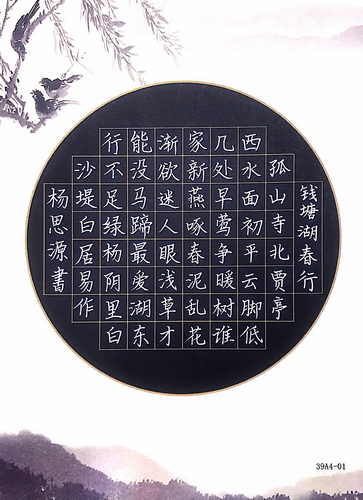 钱塘湖春行
孤山寺北贾亭
西水面初平云脚低
几处早莺争暖树谁
家新燕啄春泥乱花
渐欲迷人眼浅草才
能没马蹄最爱湖东
行不足绿杨阴里白
沙堤白居易作
杨思源書
39A4-01